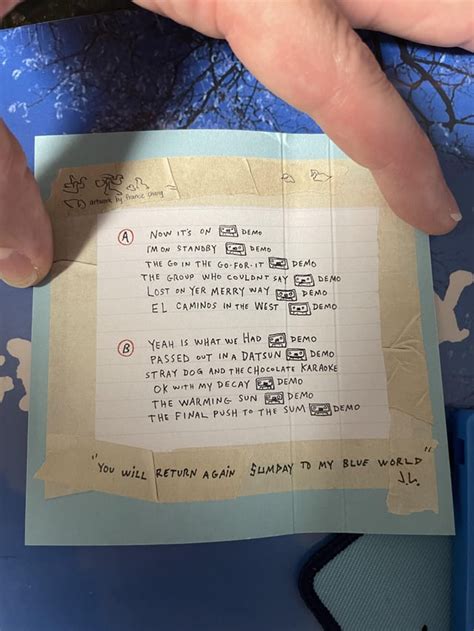 artwork by francie chang
A NOW IT'S ON DEMO
I'M ON STANDBY DEMO
THE GO IN THE GO-FOR-IT DEMO
THE GROUP WHO COULDNT SAY DEMO
LOST ON YER MERRY WAY DEMO
EL CAMINOS IN THE WEST DEMO
B YEAH IS WHAT WE HAD DEMO
PASSED OUT IN A DATSUN DEMO
STRAY DOG AND THE CHOCOLATE KARAOKE
OK WITH MY DECAY DEMO
THE WARMING SUN DEMO
THE FINAL PUSH TO THE SUM DEMO
"YOU WILL RETURN AGAIN SUMDAY TO MY BLUE WORLD"
J.L.